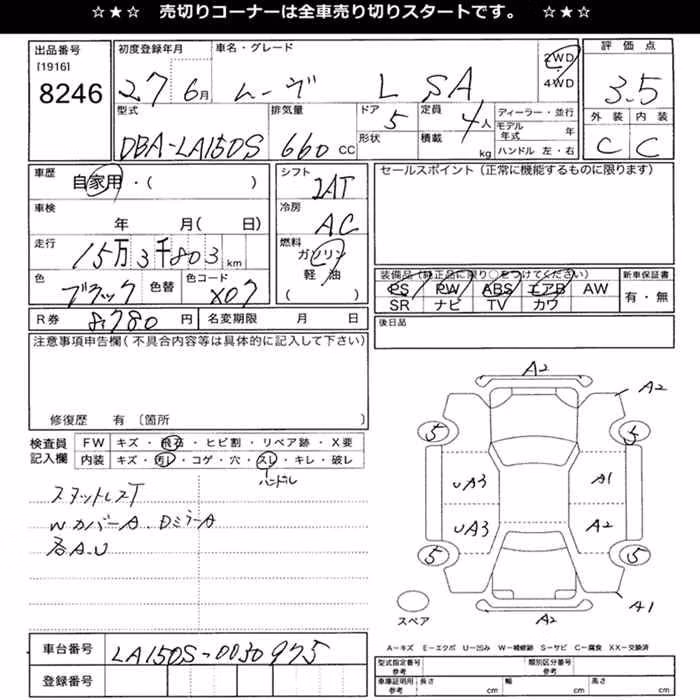 ☆★☆ 売切りコーナーは全車売り切りスタートです。 ☆★☆
出品番号 初度登録年月 車名・グレード 評価点
[1916]
8246
27 6月 ムーヴ L SA 2WD 4WD 3.5
型式 排気量 ドア 定員 ディーラー・並行 外装 内装
DBA-LA150S 660 CC 5 4人 モデル年式 年 C C
形状 積載 kg ハンドル 左・右
車歴 自家用・( ) シフト セールスポイント(正常に機能するものに限ります)
2AT
車検 年 月( 日) 冷房 AC
走行 15万3千803 km 燃料 ガソリン 軽油 ( )
色 ブラック 色替 色コード X07
装備品(純正品に限り○をつけてください) 新車保証書
PS PW ABS エアB AW 有・無
SR ナビ TV カワ
R券 8,780 円 名変期限 月 日 後日品
注意事項申告欄(不具合内容等は具体的に記入して下さい)
修復歴 有 〔箇所 〕
検査員記入欄
FW キズ・飛石・ヒビ割・リペア跡・X要
内装 キズ・汚レ・コゲ・穴・スレ・キレ・破レ
ハンドル
スタットレスT
WカバーA.DミラーA
各A.U
A2
A2
5 5
UA3 A1
UA3 A2
5 5
スペア
A2 A1
A-キズ E-エクボ U-凹み W-補修跡 S-サビ C-腐食 XX-交換済
車台番号 LA150S-0030975
登録番号
型式指定番号 参考 類別区分番号 参考
車庫証明用 参考 長さ cm 幅 cm 高さ cm